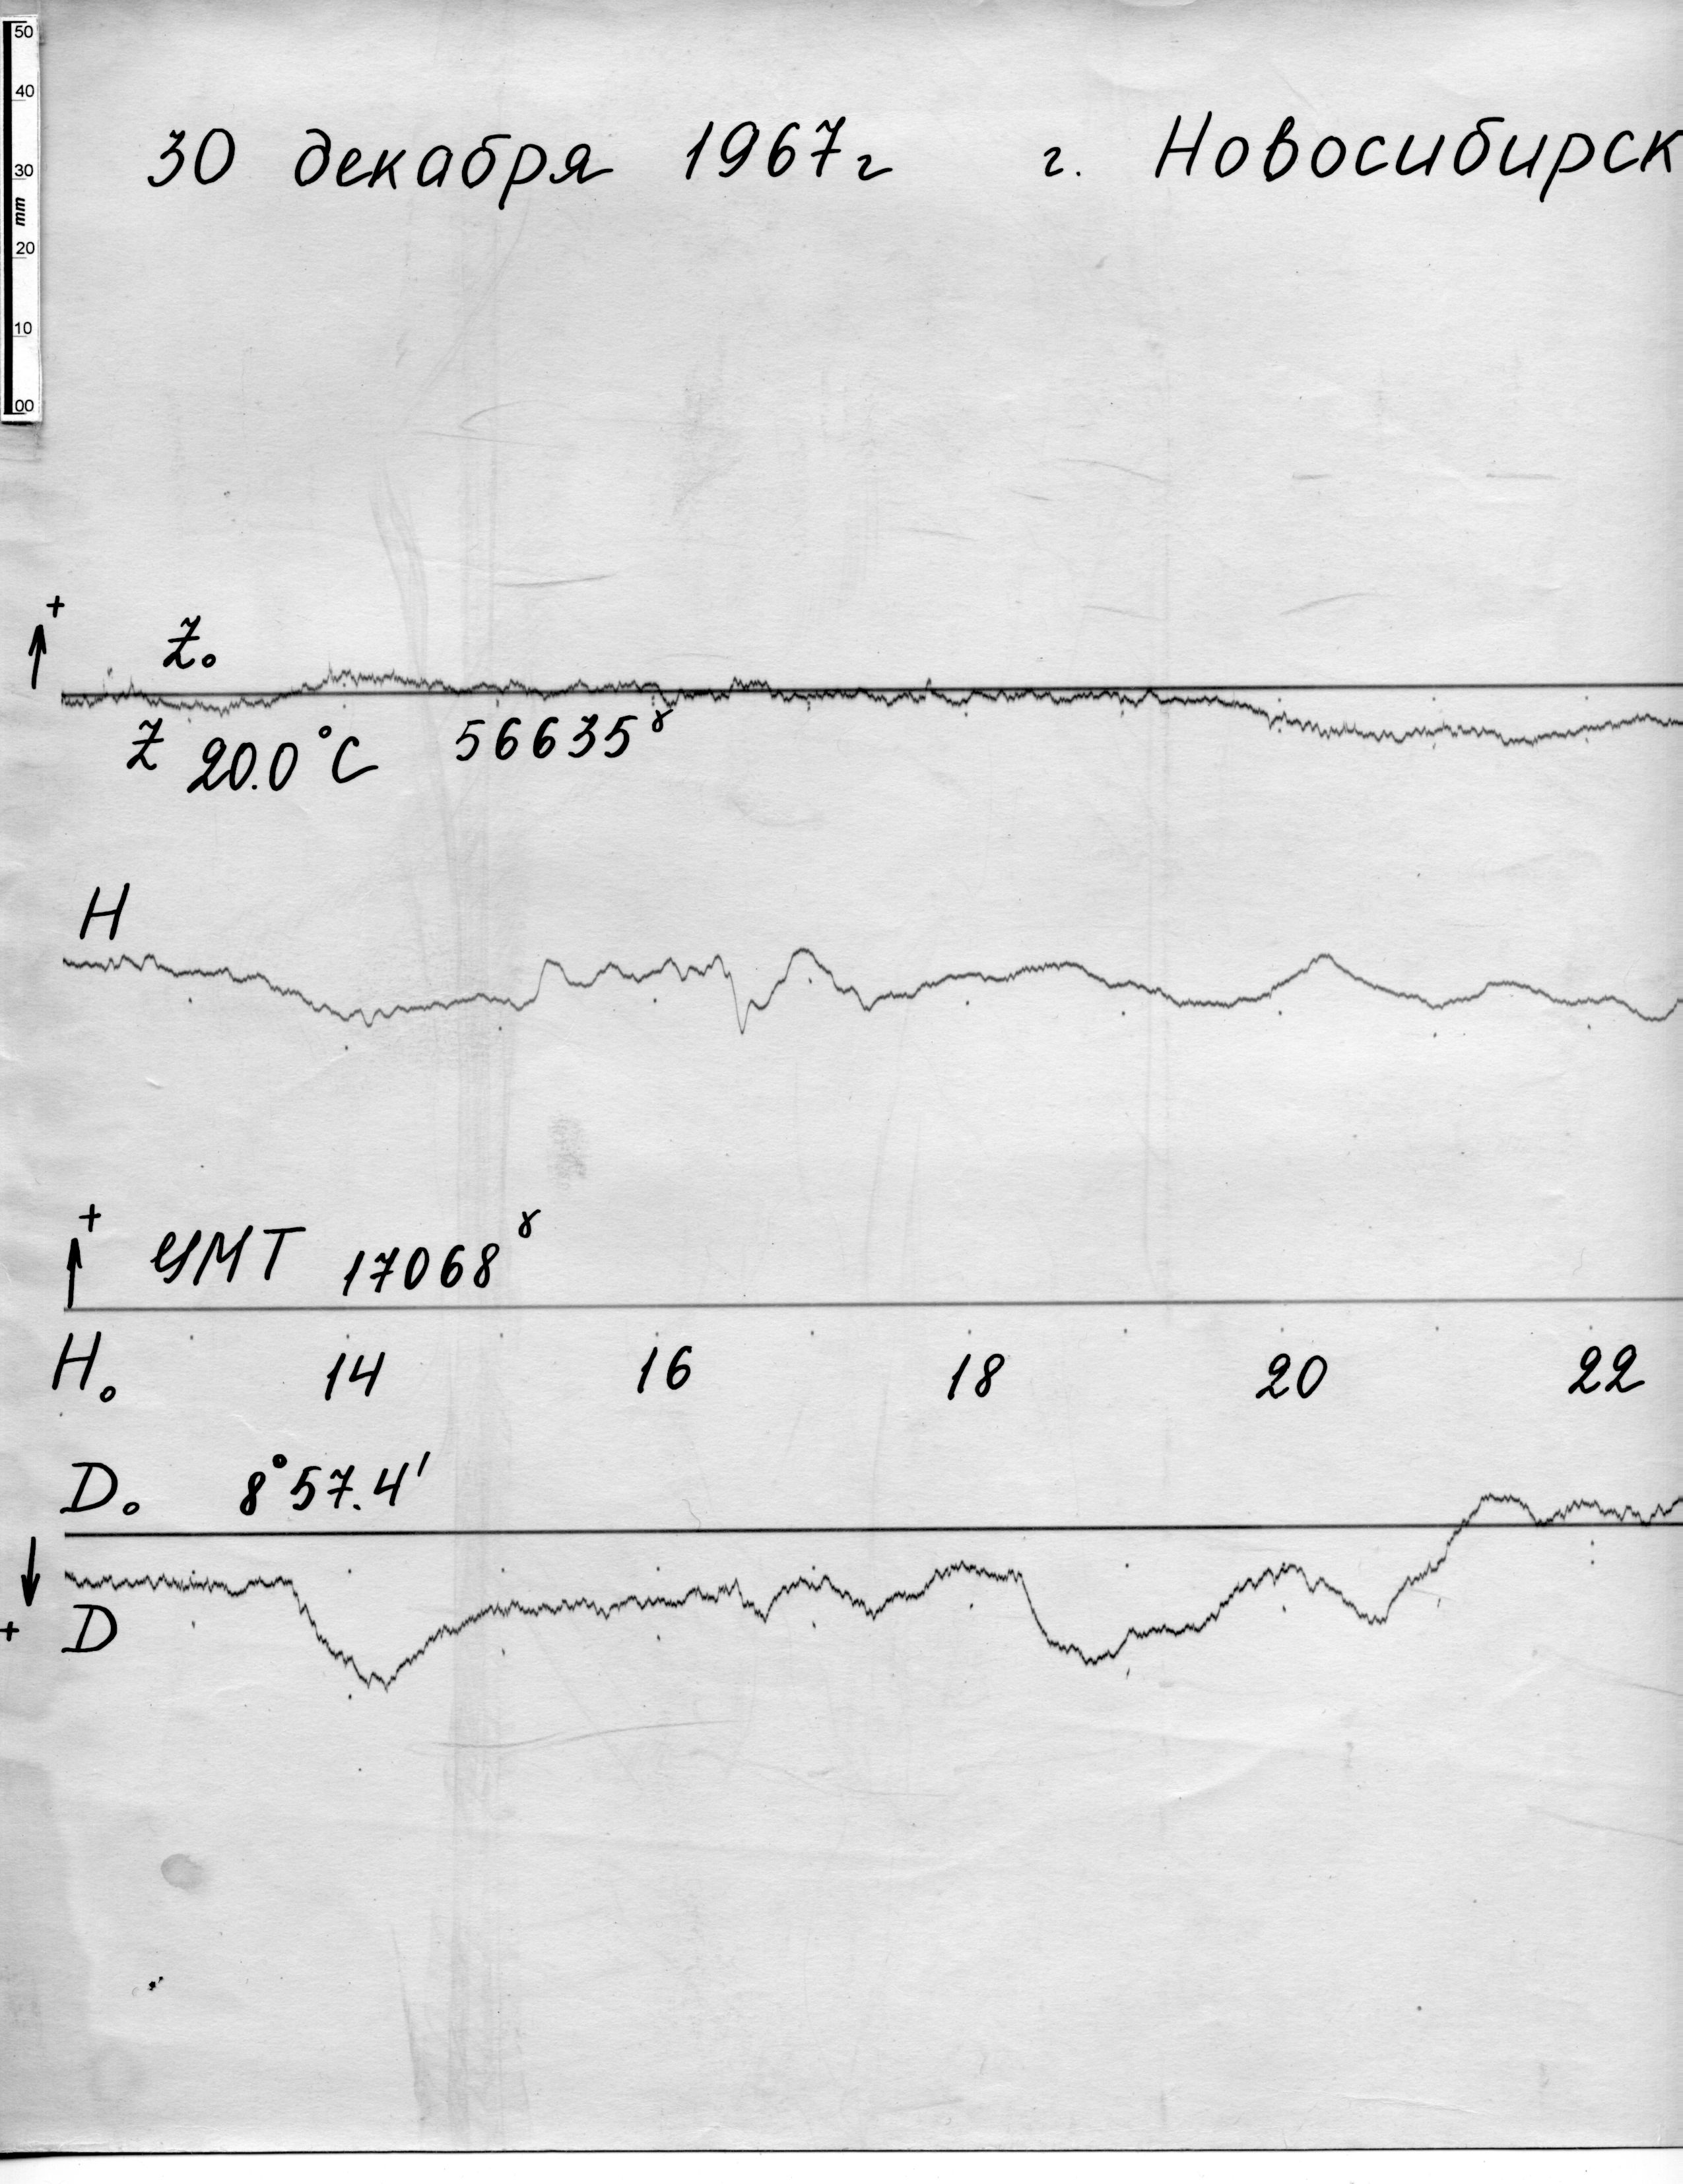 50
40
30
mm
20
10
00
30 декабря 1967г г. Новосибирск
+
Z₀
Z 20.0°C 56635ᵞ
H
+
УМТ 17068ᵞ
H₀ 14 16 18 20 22
D₀ 8°57.4'
+ D